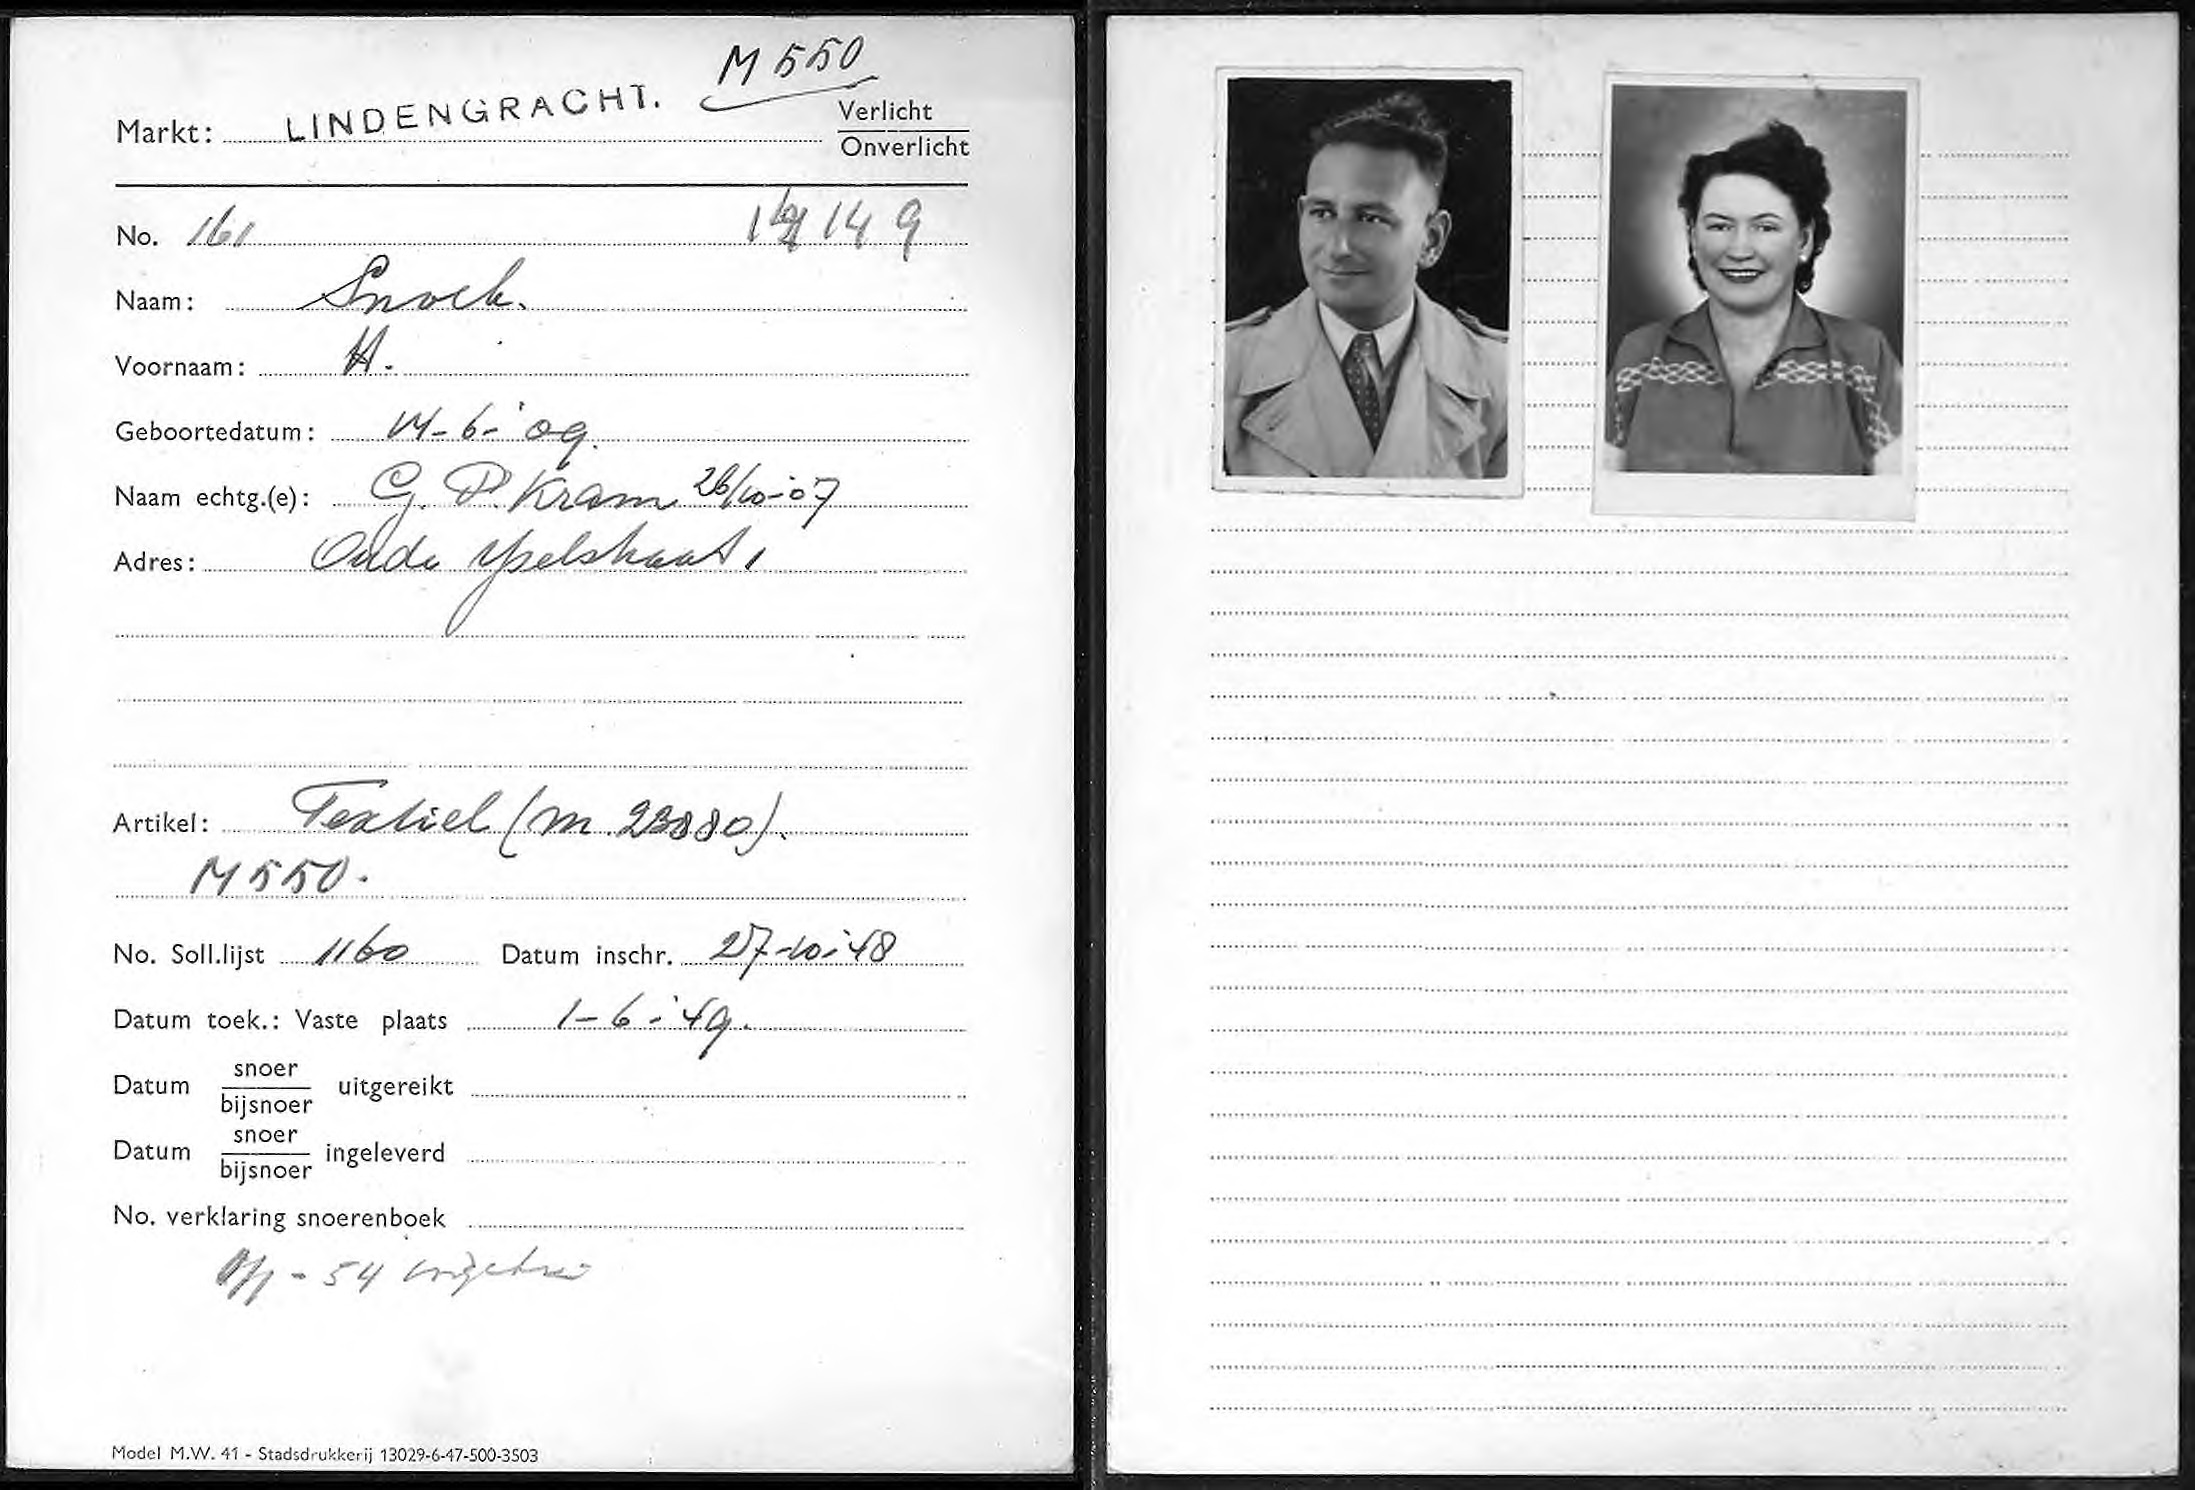 M 550
Markt: LINDENGRACHT. Verlicht
Onverlicht
No. 161 149
Naam: Snoek.
Voornaam: H.
Geboortedatum: 14-6-'09.
Naam echtg.(e): G. P. Kram 26/10-07
Adres: Oude Yselstraat 1
Artikel: Textiel (M. 23880).
M 550.
No. Soll.lijst 1160 Datum inschr. 27-10-'48
Datum toek.: Vaste plaats 1-6-'49.
Datum snoer uitgereikt
bijsnoer
Datum snoer ingeleverd
bijsnoer
No. verklaring snoerenboek
- 54
Model M.W. 41 - Stadsdrukkerij 13029-6-47-500-3503